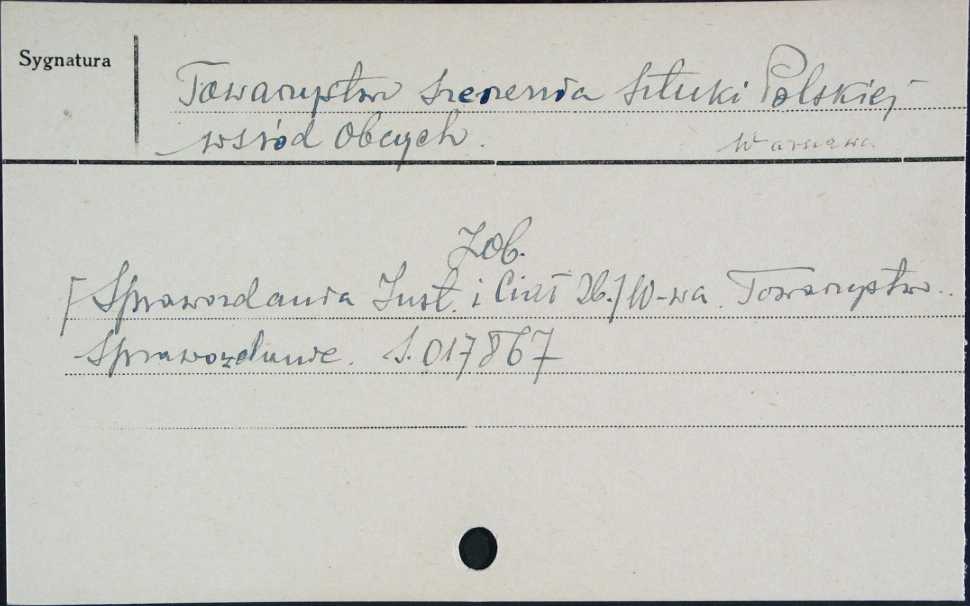 Sygnatura
Towarzystwo Szerzenia Sztuki Polskiej
wśród Obcych.
Warszawa
Zob.
[Sprawozdania Inst. i Ciał Zb.] W-wa. Towarzystwo..
Sprawozdanie. S. 017867